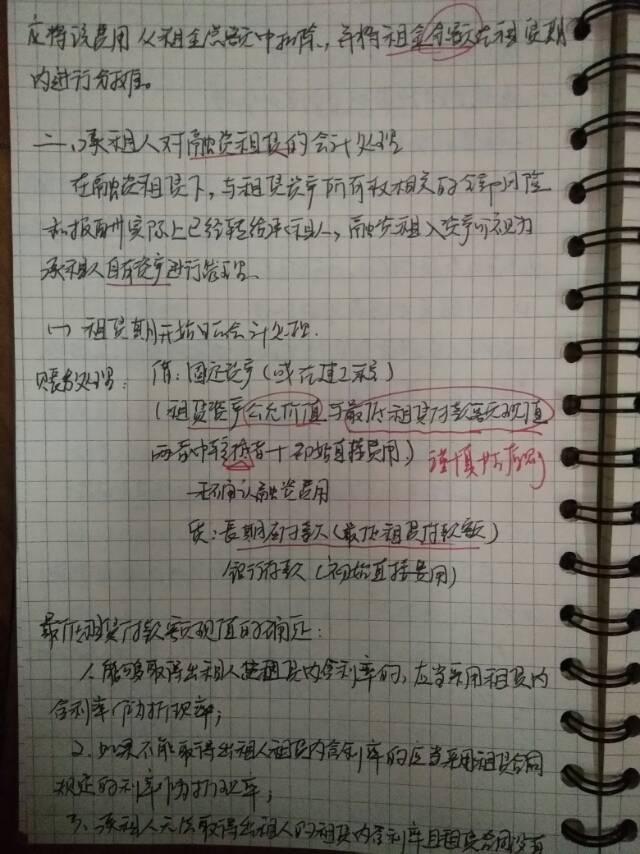 应将该费用从租金总额中扣除，并将租金余额在租赁期
内进行分摊。
二、承租人对融资租赁的会计处理
在融资租赁下，与租赁资产所有权相关的全部风险
和报酬实际上已经转给承租人，融资租入资产应视为
承租人自有资产进行管理。
(一) 租赁期开始日会计处理.
账务处理：借：固定资产(或在建工程)
(租赁资产公允价值与最低租赁付款额现值
两者中较低者+初始直接费用) 谨慎性原则
未确认融资费用
贷：长期应付款(最低租赁付款额)
银行存款(初始直接费用)
最低租赁付款额现值的确定：
1. 能够取得出租人租赁内含利率的，应当采用租赁内
含利率作为折现率；
2. 如果不能取得出租人租赁内含利率的应当采用租赁合同
规定的利率作为折现率；
3、承租人无法取得出租人的租赁内含利率且租赁合同没有